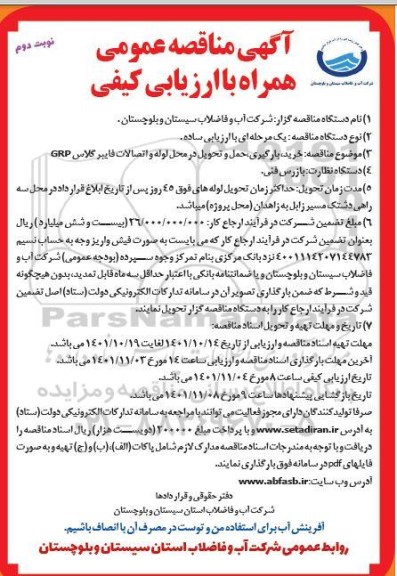 نوبت دوم
آگهی مناقصه عمومی
همراه با ارزیابی کیفی
شرکت آب و فاضلاب سیستان و بلوچستان
۱) نام دستگاه مناقصه گزار: شرکت آب و فاضلاب سیستان و بلوچستان.
۲) نوع دستگاه مناقصه: یک مرحله ای با ارزیابی ساده.
۳) موضوع مناقصه: خرید، بارگیری، حمل و تحویل در محل لوله و اتصالات فایبر گلاس GRP
۴) دستگاه نظارت: بازرس فنی.
۵) مدت زمان تحویل: حداکثر زمان تحویل لوله های فوق ۴۵ روز پس از تاریخ ابلاغ قرارداد در محل سه
راهی دشتک مسیر زابل به زاهدان (محل پروژه) میباشد.
۶) مبلغ تضمین شرکت در فرآیند ارجاع کار: ۲۶/۰۰۰/۰۰۰/۰۰۰ (بیست و شش میلیارد) ریال
بعنوان تضمین شرکت در فرآیند ارجاع کار که می بایست به صورت فیش واریز وجه به حساب نسیم
۴۰۰۱۱۱۴۲۰۷۱۴۴۷۸۳ نزد بانک مرکزی بنام تمرکز وجوه سپرده (بودجه عمومی) شرکت آب و
فاضلاب سیستان و بلوچستان و یا ضمانتنامه بانکی با اعتبار حداقل سه ماه قابل تمدید، بدون هیچگونه
قید و شرط که ضمن بارگذاری تصویر آن در سامانه تدارکات الکترونیکی دولت (ستاد) اصل تضمین
شرکت در فرآیند ارجاع کار را به دستگاه مناقصه گزار تحویل نمایند.
۷) تاریخ و مهلت تهیه و تحویل اسناد مناقصه:
مهلت تهیه اسناد مناقصه و ارزیابی از تاریخ ۱۴۰۱/۱۰/۱۴ لغایت ۱۴۰۱/۱۰/۱۹ می باشد.
آخرین مهلت بارگذاری اسناد مناقصه و ارزیابی ساعت ۱۴ مورخ ۱۴۰۱/۱۱/۰۳ می باشد.
تاریخ ارزیابی کیفی ساعت ۸ مورخ ۱۴۰۱/۱۱/۰۴ می باشد.
تاریخ بازگشایی پیشنهادها ساعت ۹ مورخ ۱۴۰۱/۱۱/۰۸ می باشد.
صرفا تولیدکنندگان دارای مجوز فعالیت می توانند با مراجعه به سامانه تدارکات الکترونیکی دولت (ستاد)
به آدرس www.setadiran.ir و با پرداخت مبلغ ۲۰۰۰۰۰ (دویست هزار) ریال اسناد مناقصه را
دریافت و با توجه به مندرجات اسناد مناقصه مدارک لازم شامل پاکات (الف)، (ب) و (ج) تهیه و به صورت
فایلهای pdf در سامانه فوق بارگذاری نمایند.
آدرس وب سایت: www.abfasb.ir
دفتر حقوقی و قراردادها
شرکت آب و فاضلاب استان سیستان و بلوچستان
آفرینش آب برای استفاده من و توست در مصرف آن با انصاف باشیم.
روابط عمومی شرکت آب و فاضلاب استان سیستان و بلوچستان